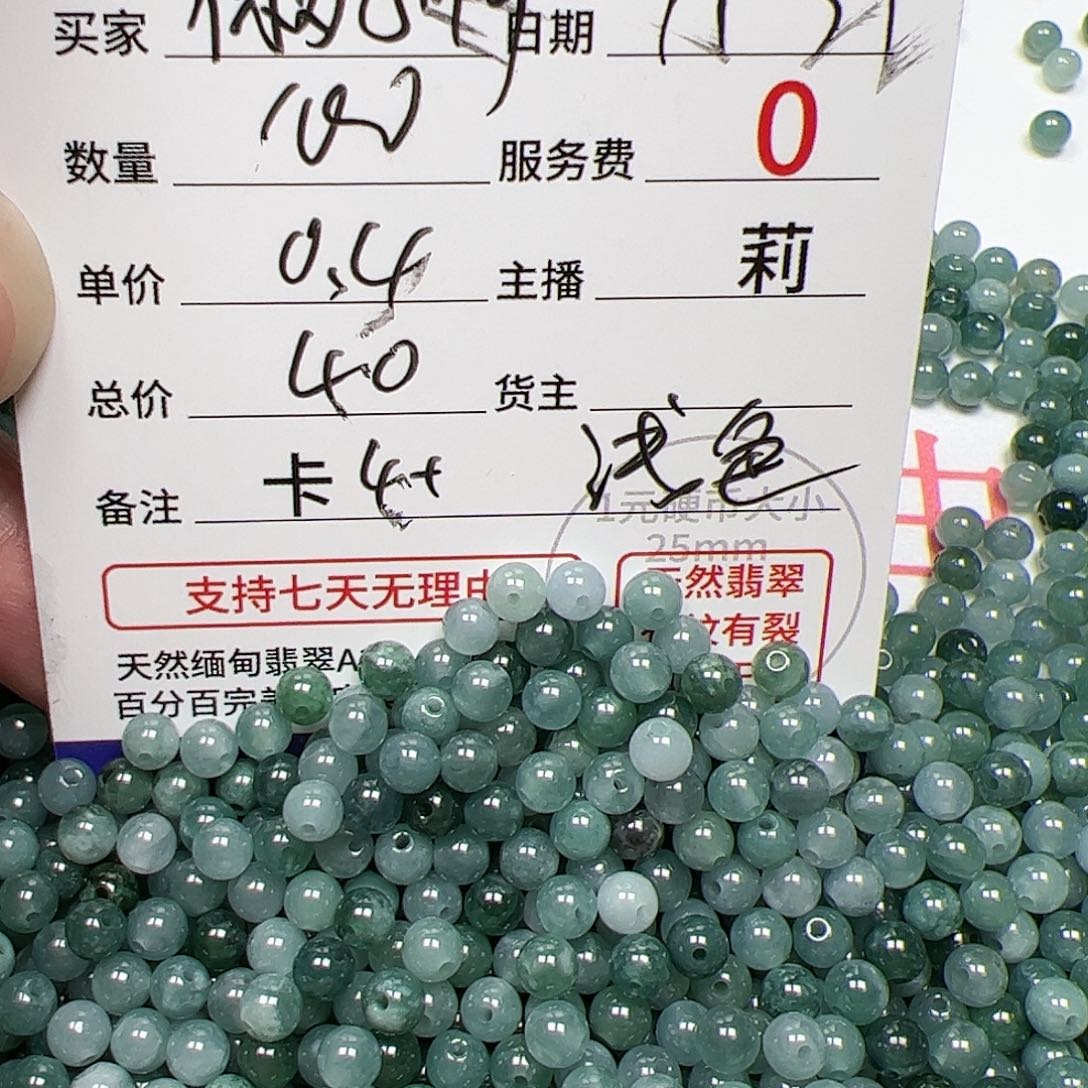 买家 日期
数量 100 服务费 0
单价 0.4 主播 莉
总价 40 货主
备注 卡4+ 浅色
1元硬币大小
25mm
支持七天无理由
天然翡翠
纹有裂
天然缅甸翡翠A
百分百完美